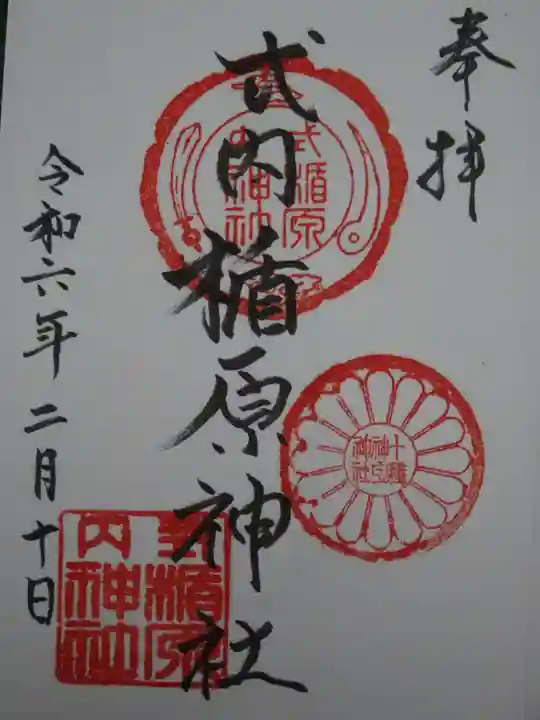 奉拝
式内楯原神社
令和六年二月十日
式内楯原神社
十種神宝神社
式内楯原神社